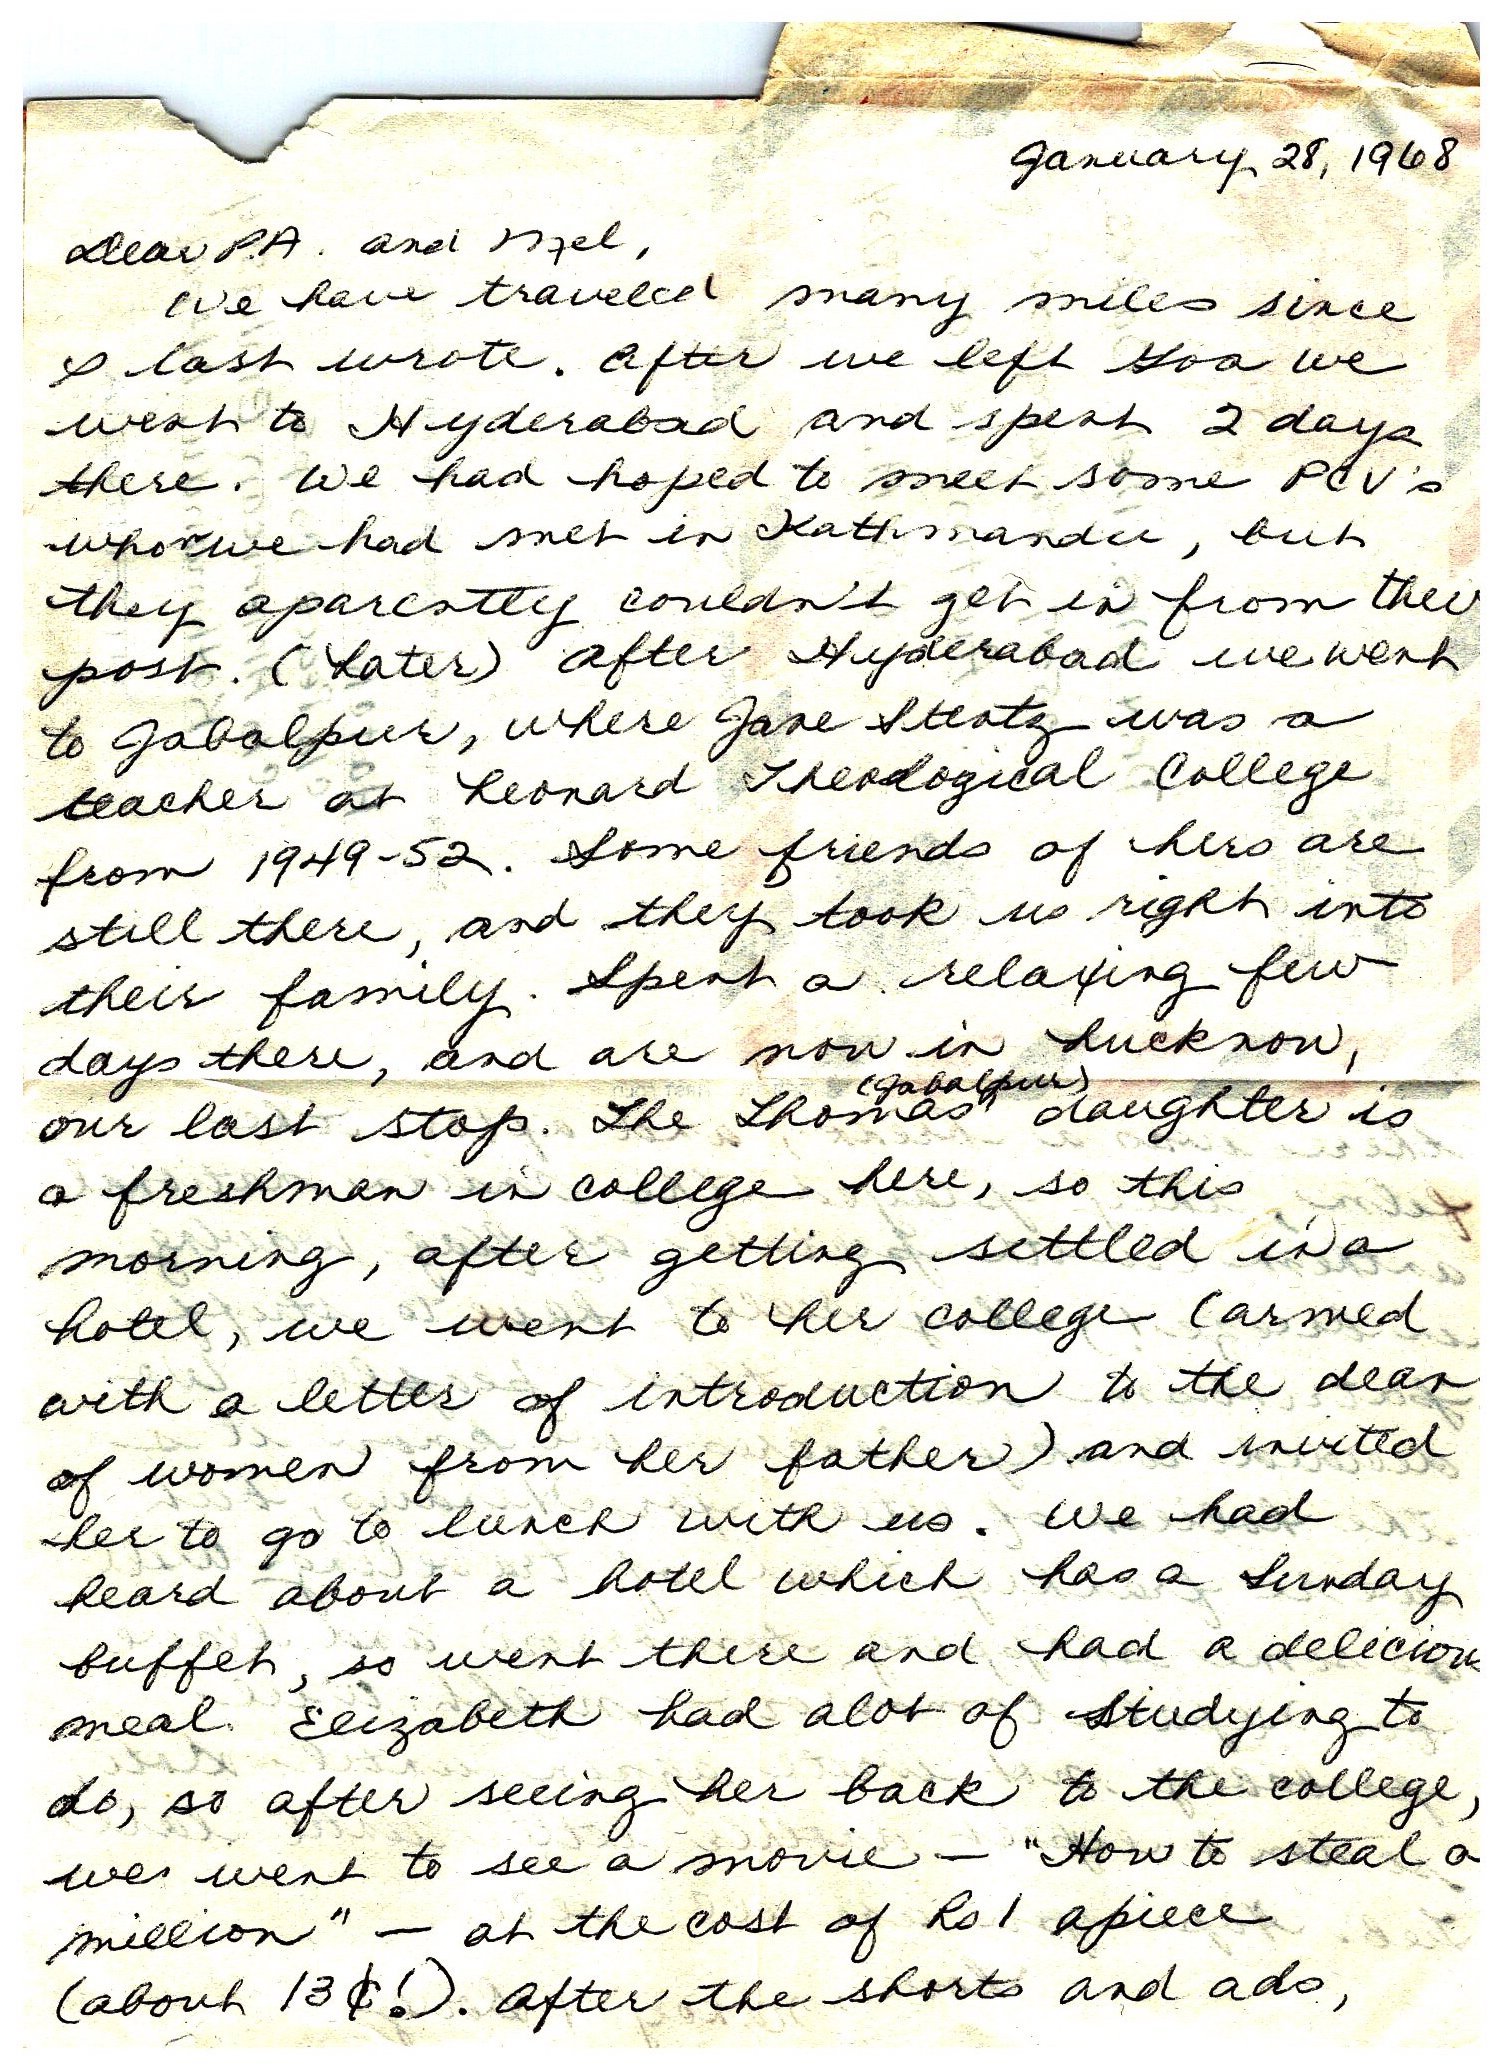 January 28, 1968
Dear P.A. and Mel,
We have traveled many miles since
I last wrote. After we left Goa we
went to Hyderabad and spent 2 days
there. We had hoped to meet some PCV's
whom we had met in Kathmandu, but
they aparently couldn't get in from their
post. (Later) After Hyderabad we went
to Jabalpur, where Jane Stentz was a
teacher at Leonard Theological College
from 1949-52. Some friends of hers are
still there, and they took us right into
their family. Spent a relaxing few
days there, and are now in Lucknow,
(Jabalpur)
our last stop. The Thomas' daughter is
a freshman in college here, so this
morning, after getting settled in a
hotel, we went to her college (armed
with a letter of introduction to the dean
of women from her father) and invited
her to go to lunch with us. We had
heard about a hotel which has a Sunday
buffet, so went there and had a delicious
meal. Elizabeth had alot of studying to
do, so after seeing her back to the college,
we went to see a movie — "How to steal a
million" — at the cost of Rs 1 apiece
(about 13¢!). After the shorts and ads,